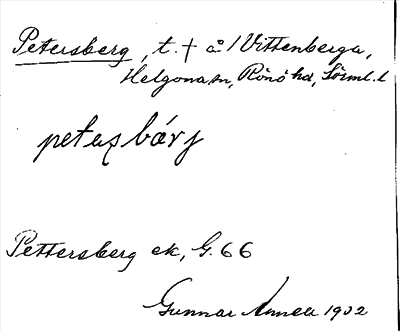 Petersberg, t. † å /Vittenberga,
Helgona sn, Rönö hd, Sörml. l
petasbärj
Pettersberg ek, G. 66
Gunnar Linnell 1932